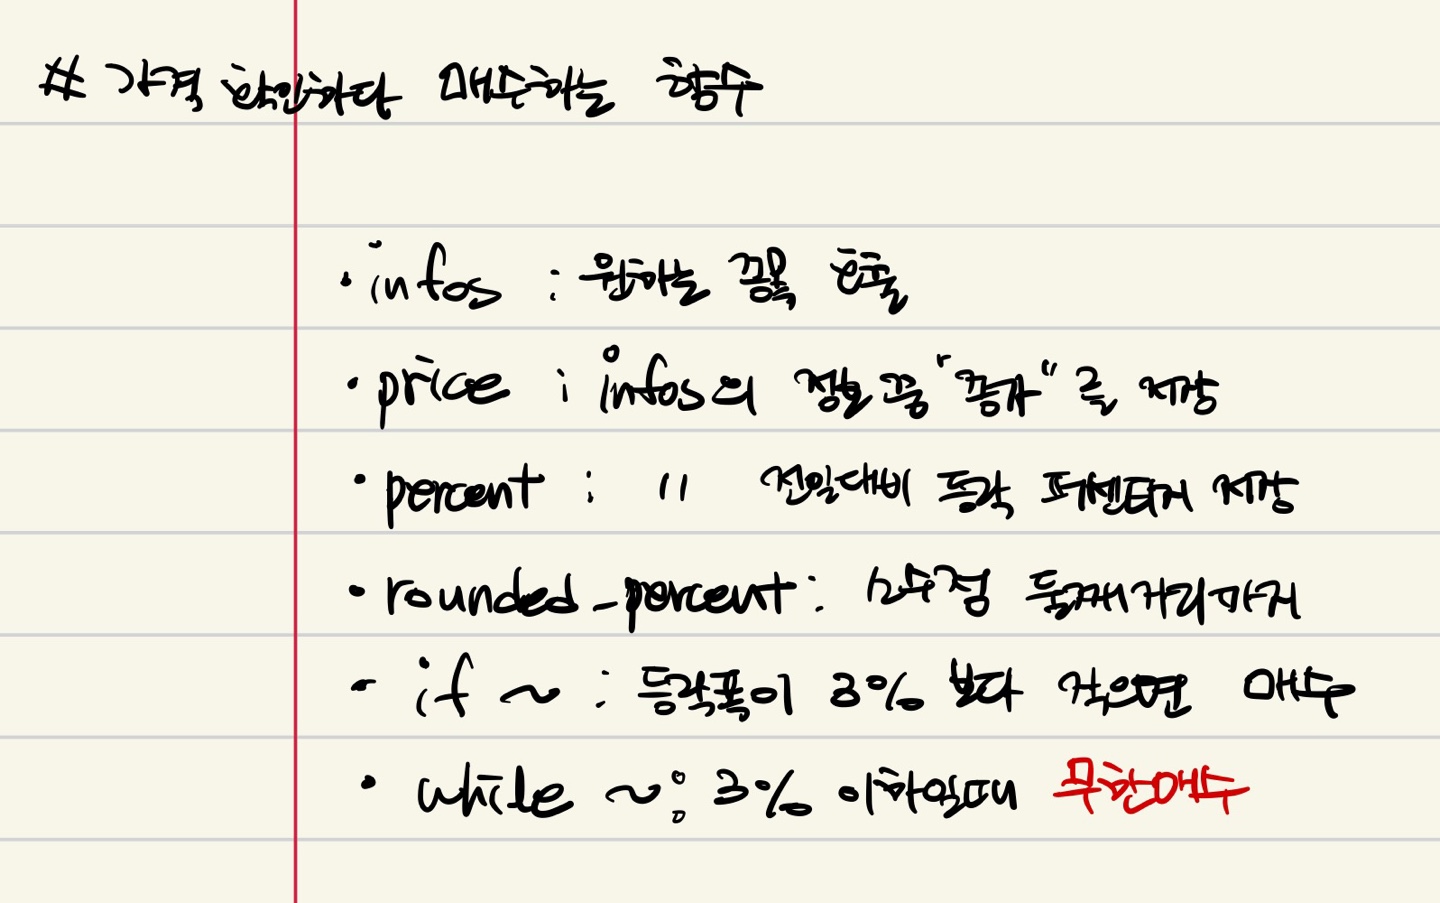 # 가격 확인하다 매수하는 함수
· infos : 원하는 종목 호출
· price : infos의 정보 중 "종가"를 저장
· percent : 〃 전일대비 등락 퍼센티지 저장
· rounded_percent : 소수점 둘째자리까지
· if ~ : 등락폭이 3% 보다 적으면 매수
· while ~ : 3% 이하일때 무한매수